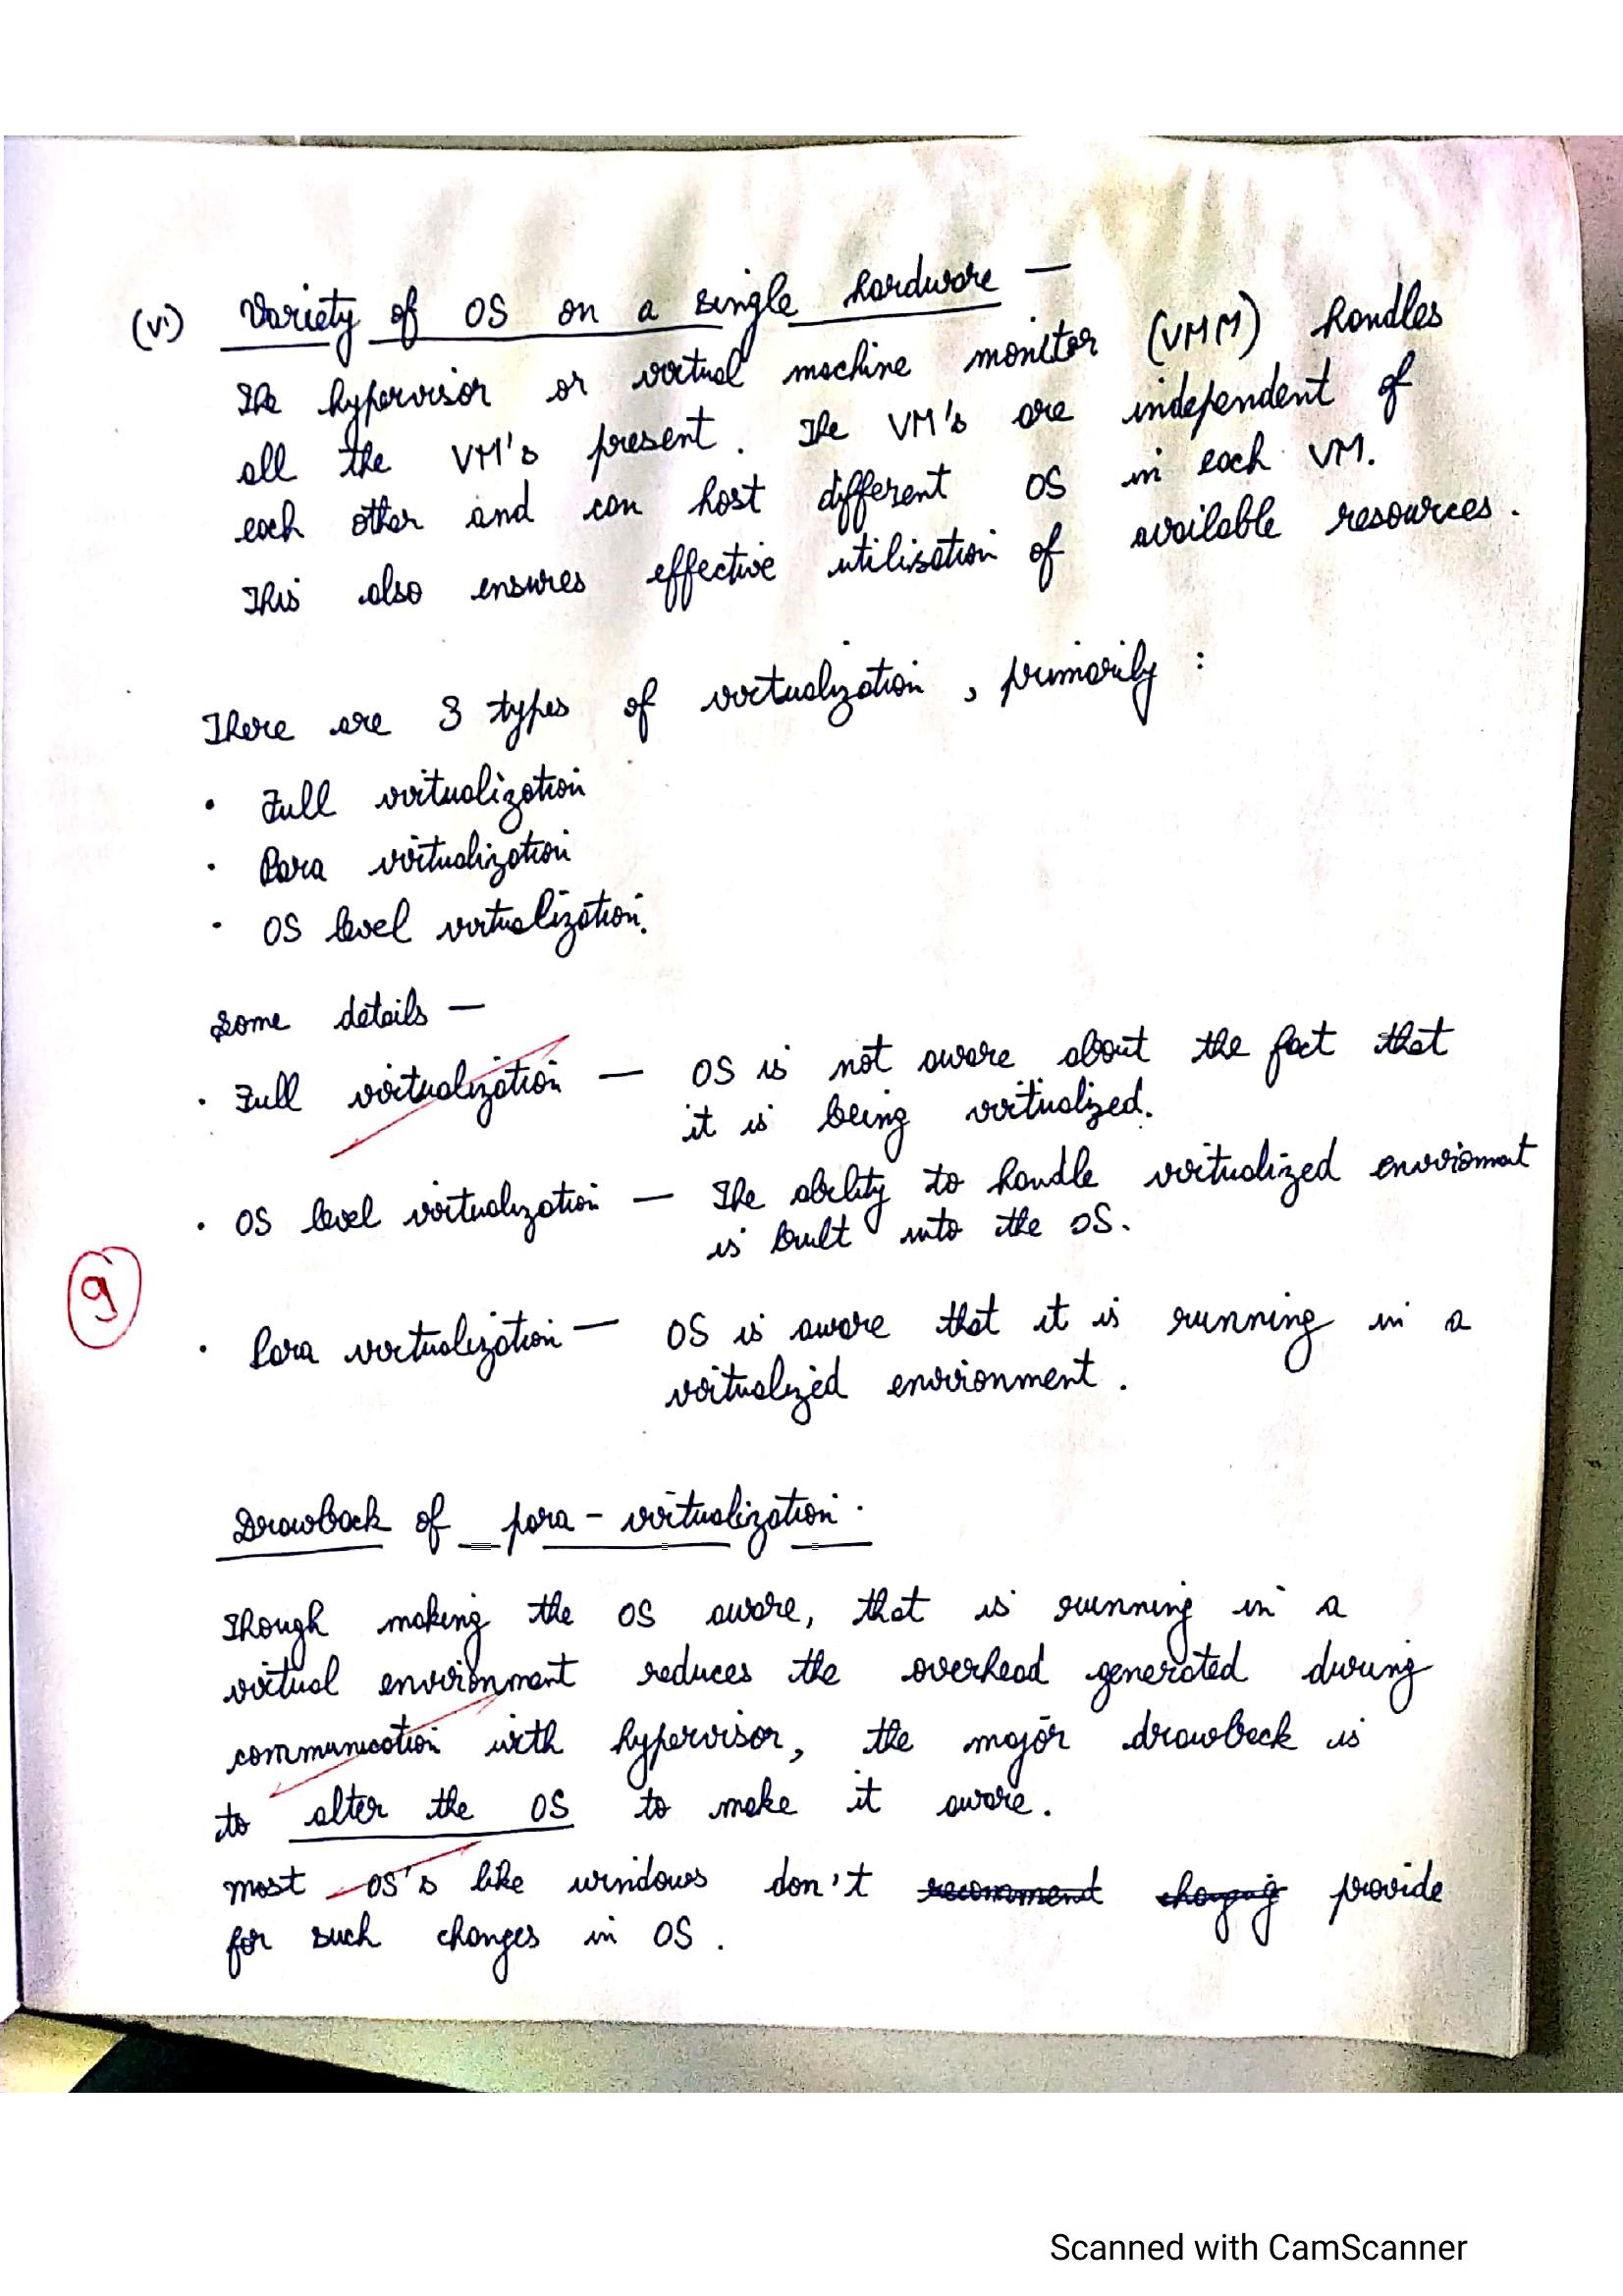 (vi) Variety of OS on a single hardware —
The hypervisor or virtual machine monitor (VMM) handles
all the VM's present. The VM's are independent of
each other and can host different OS in each VM.
This also ensures effective utilisation of available resources.
There are 3 types of virtualization, primarily :
• Full virtualization
• Para virtualization
• OS level virtualization.
Some details —
• Full virtualization — OS is not aware about the fact that
it is being virtualized.
• OS level virtualization — The ability to handle virtualized enviroment
is built into the OS.
9
• Para virtualization — OS is aware that it is running in a
virtualized environment.
Drawback of para - virtualization.
Though making the OS aware, that is running in a
virtual environment reduces the overhead generated during
communication with hypervisor, the major drawback is
to alter the OS to make it aware.
Most OS's like windows don't recommend changing provide
for such changes in OS.
Scanned with CamScanner